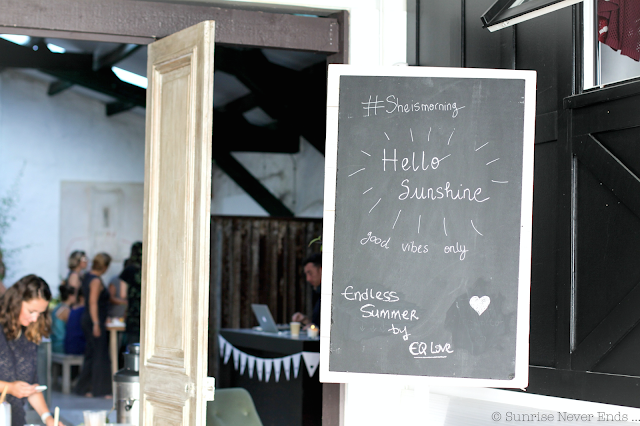 #Sheismorning
Hello
Sunshine
good vibes only
Endless
Summer
by
EQ Love
© Sunrise Never Ends ...